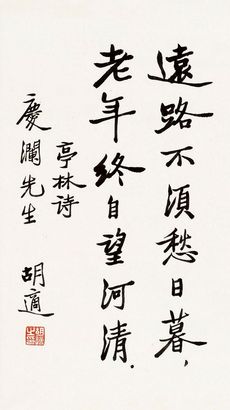 遠路不須愁日暮，
老年終自望河清．
亭林詩
慶瀾先生
胡適